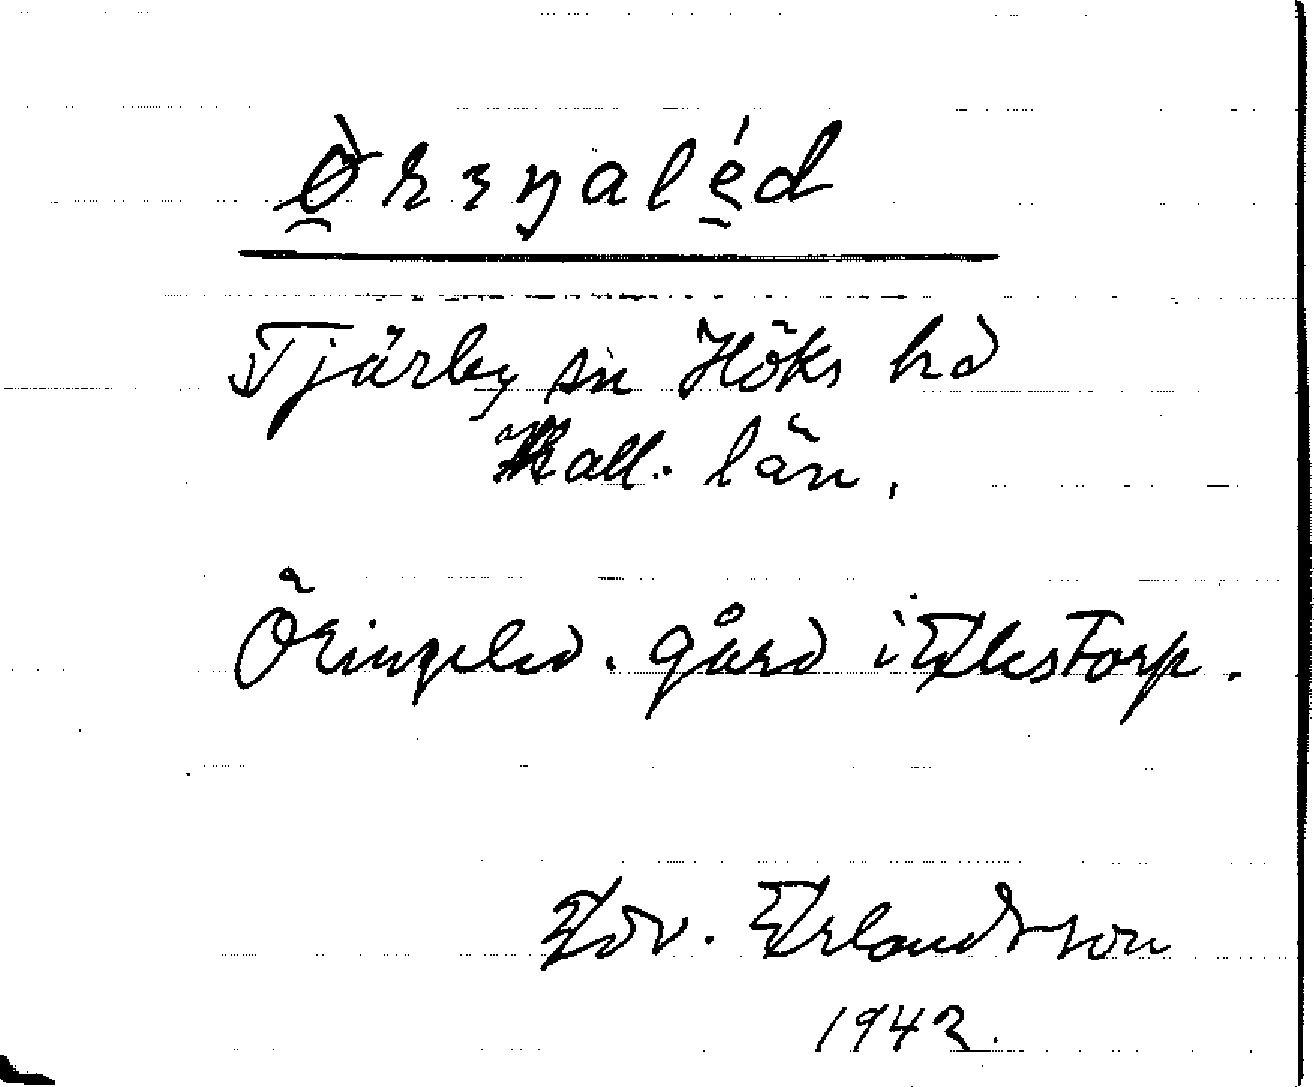 Ø̀ʀɜŋaléd
Tjärby sn Höks hd
Hall. län.
Öringeled. gård i Elestorp.
Edv. Erlandsson
1942.